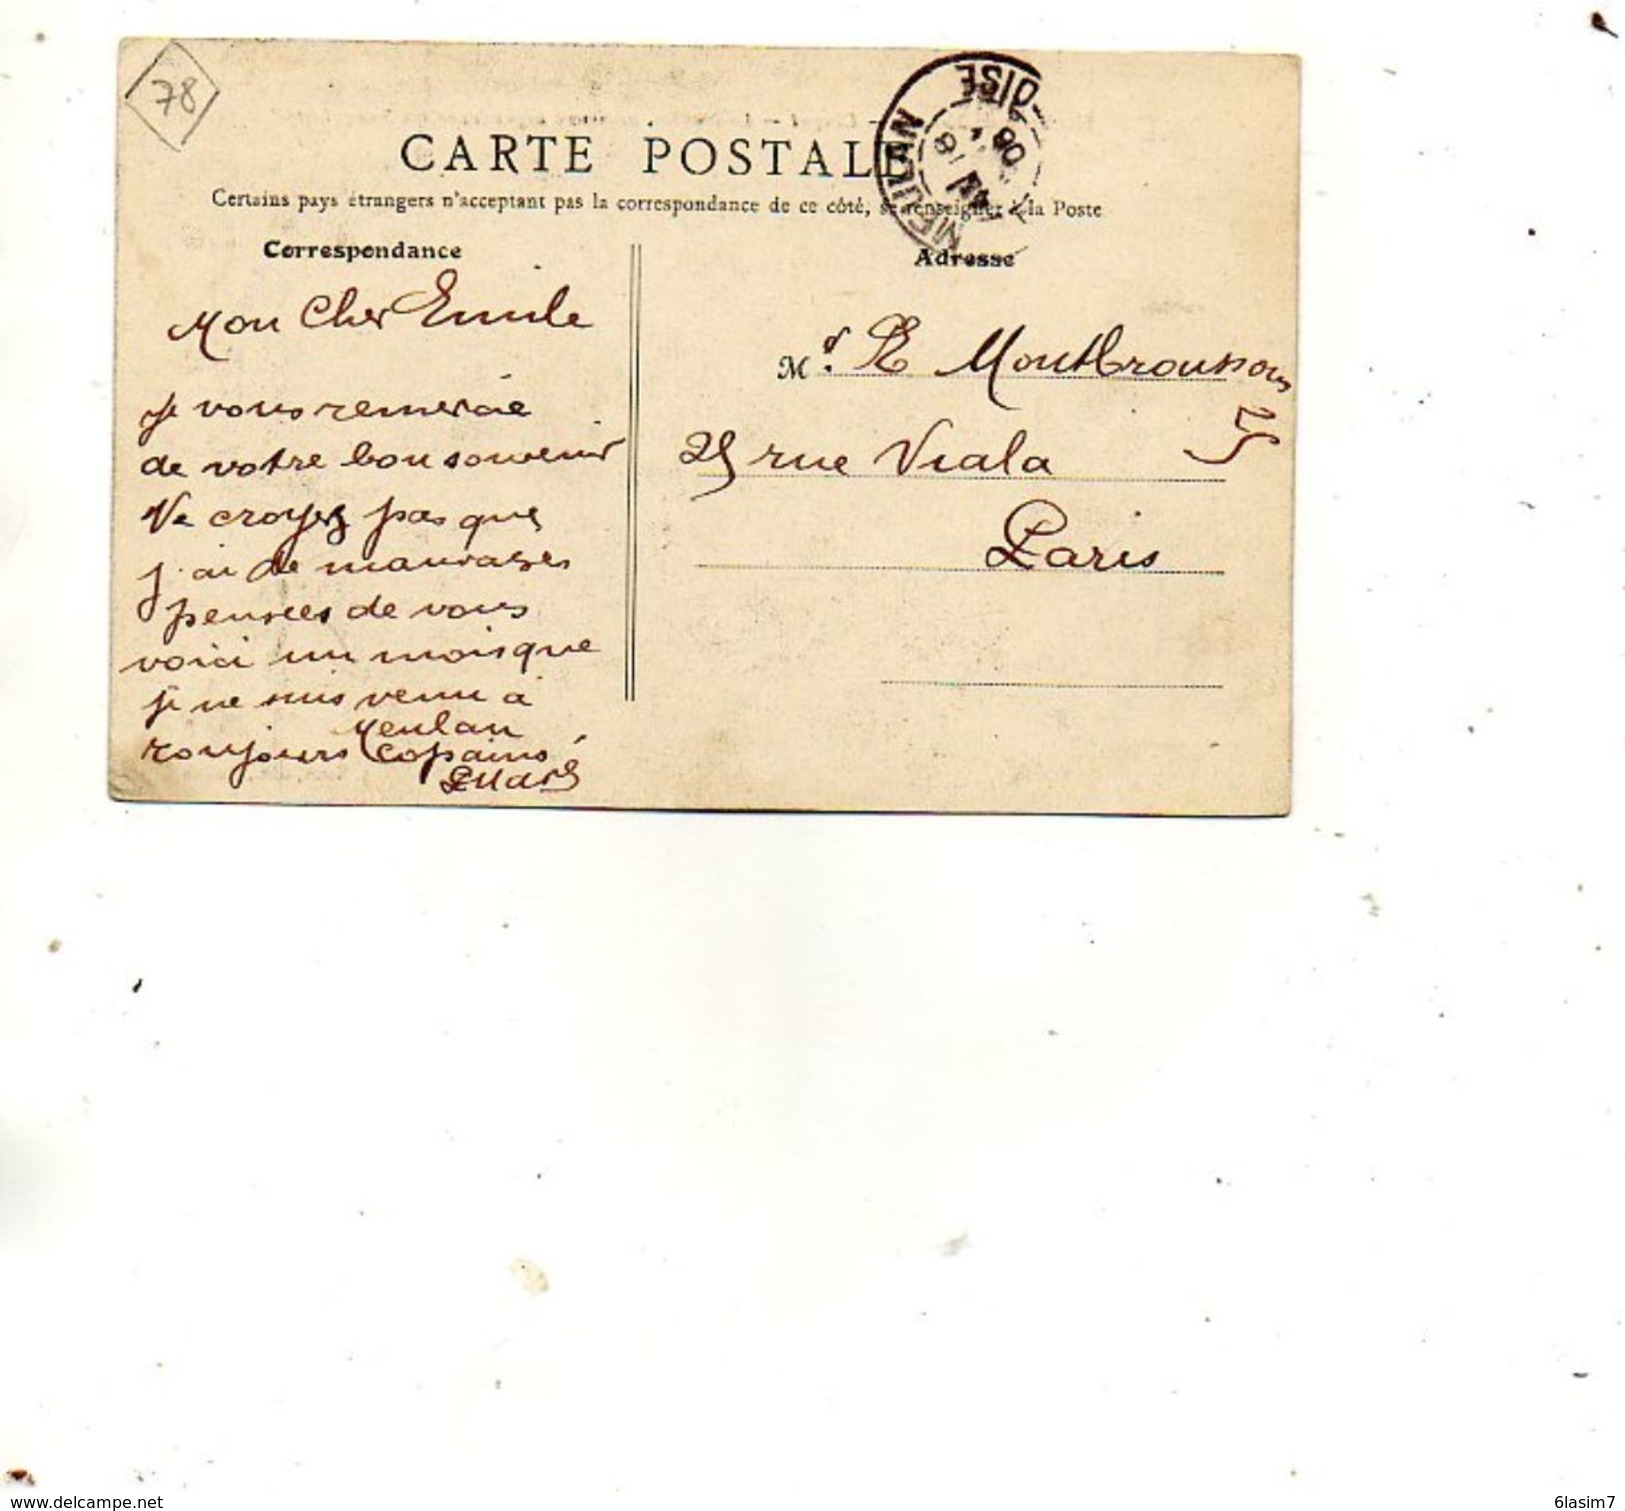 78
CARTE POSTALE
Certains pays étrangers n'acceptant pas la correspondance de ce côté, se renseigner à la Poste
Correspondance
Mon Cher Emile
je vous remercie
de votre bon souvenir
Ne croyez pas que
j'ai de mauvaises
pensees de vous
voici un mois que
je ne suis venu à
Meulan
toujours copains
Adresse
Mr. E Montbrousson
25 rue Viala
Paris
MEULAN
OISE
18
06
www.delcampe.net
6lasim7